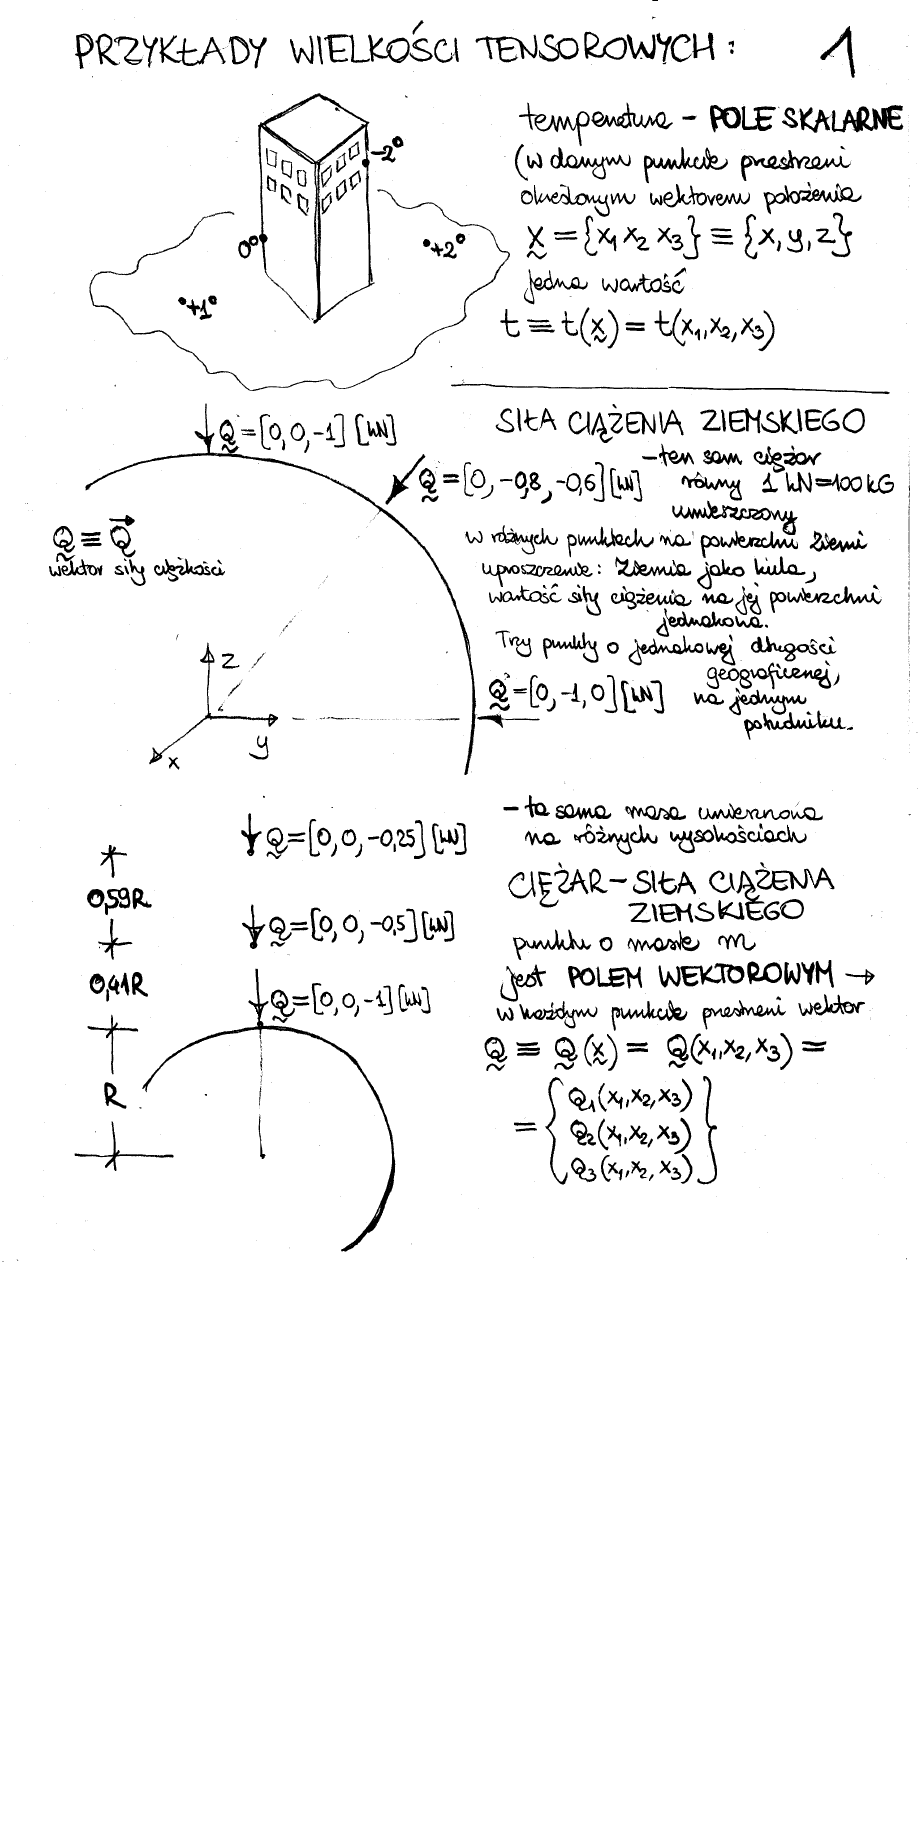 PRZYKŁADY WIELKOŚCI TENSOROWYCH: 1
temperatura - POLE SKALARNE
(w danym punkcie przestrzeni
określonym wektorem położenia
x = {x1 x2 x3} ≡ {x, y, z}
jedna wartość
t ≡ t(x) = t(x1, x2, x3)
-2°
0°
+2°
+1°
SIŁA CIĄŻENIA ZIEMSKIEGO
- ten sam ciężar
równy 1 kN = 100 kG
umieszczony
w różnych punktach na powierzchni Ziemi
uproszczenie: Ziemia jako kula,
wartość siły ciążenia na jej powierzchni
jednakowa.
Trzy punkty o jednakowej długości
geograficznej,
na jednym
południku.
Q = [0, 0, -1] [kN]
Q = [0, -0,8, -0,6] [kN]
Q ≡ Q⃗
wektor siły ciężkości
z
Q = [0, -1, 0] [kN]
y
x
- ta sama masa umieszczona
na różnych wysokościach
CIĘŻAR - SIŁA CIĄŻENIA
ZIEMSKIEGO
punktu o masie m
jest POLEM WEKTOROWYM →
w każdym punkcie przestrzeni wektor
Q ≡ Q(x) = Q(x1, x2, x3) =
= { Q1(x1, x2, x3)
Q2(x1, x2, x3)
Q3(x1, x2, x3) }
Q = [0, 0, -0,25] [kN]
0,59R
Q = [0, 0, -0,5] [kN]
0,41R
Q = [0, 0, -1] [kN]
R